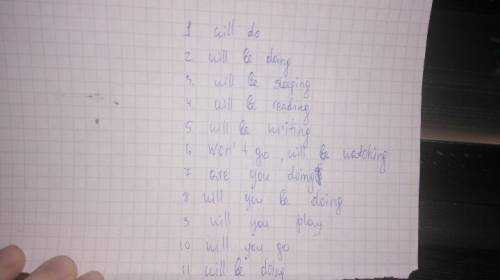 1 will do
2 will be doing
3. will be sleeping
4 will be reading
5 will be writing
6 won't go, will be watching
7 are you doing
8 will you be doing
9 will you play
10 will you go
11 will be doing